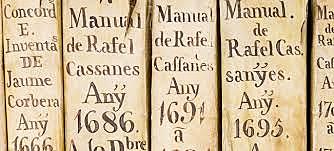 Concord
E.
Inventa
DE
Jaume
Corbera
Anÿ
1666
Manual
de Rafel
Cassanes
Anÿ
1686.
A 10 Dbre
Manual
de Rafel
Cassanes
Anÿ
1691
â
Manual.
de
Rafel Cas.
sanÿes.
Anÿ.
1695.